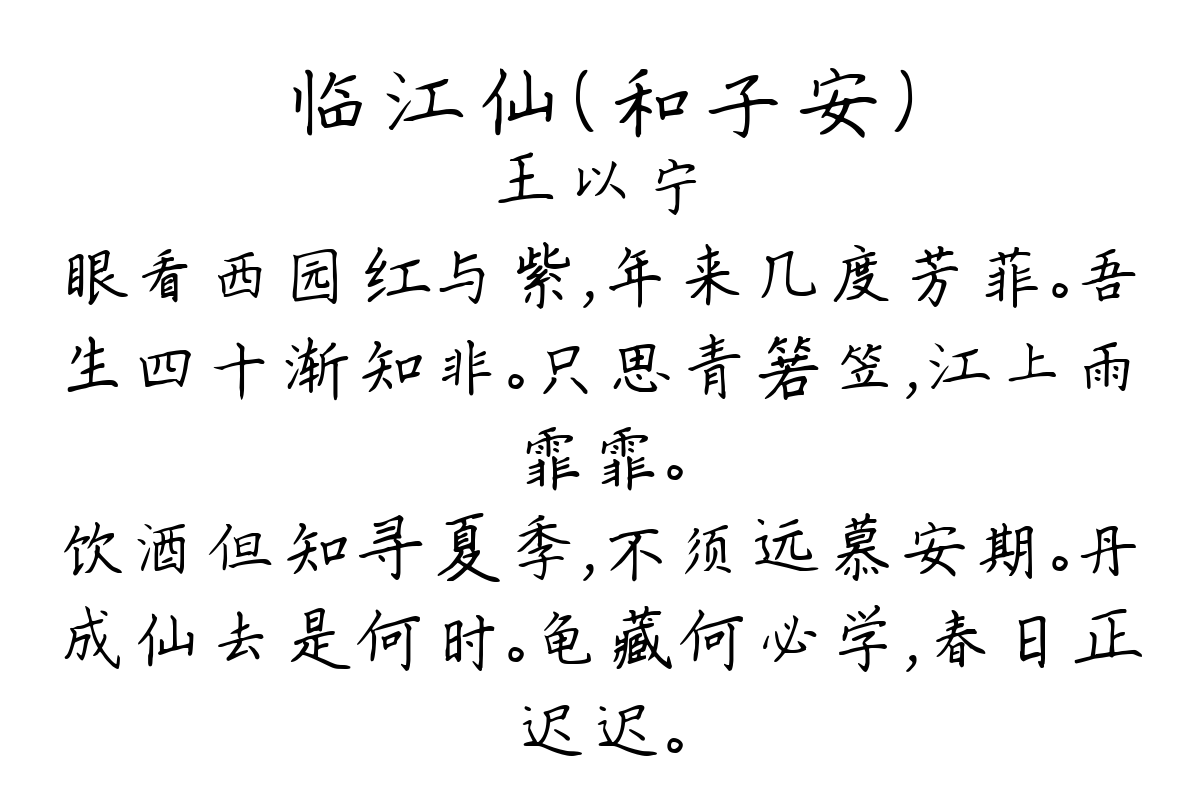 临江仙(和子安)
王以宁
眼看西园红与紫,年来几度芳菲。吾
生四十渐知非。只思青箬笠,江上雨
霏霏。
饮酒但知寻夏季,不须远慕安期。丹
成仙去是何时。龟藏何必学,春日正
迟迟。